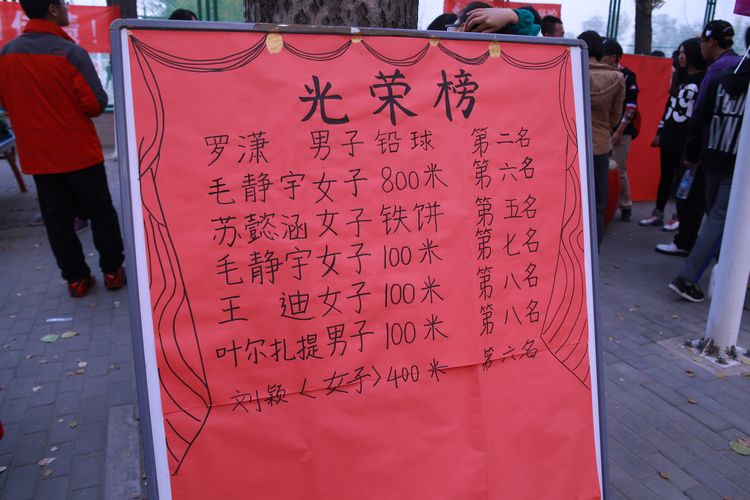 光荣榜
罗潇 男子铅球 第二名
毛静宇女子800米 第六名
苏懿涵女子铁饼 第五名
毛静宇女子100米 第七名
王迪女子100米 第八名
叶尔扎提男子100米 第八名
刘颖〈女子〉400米 第六名
69